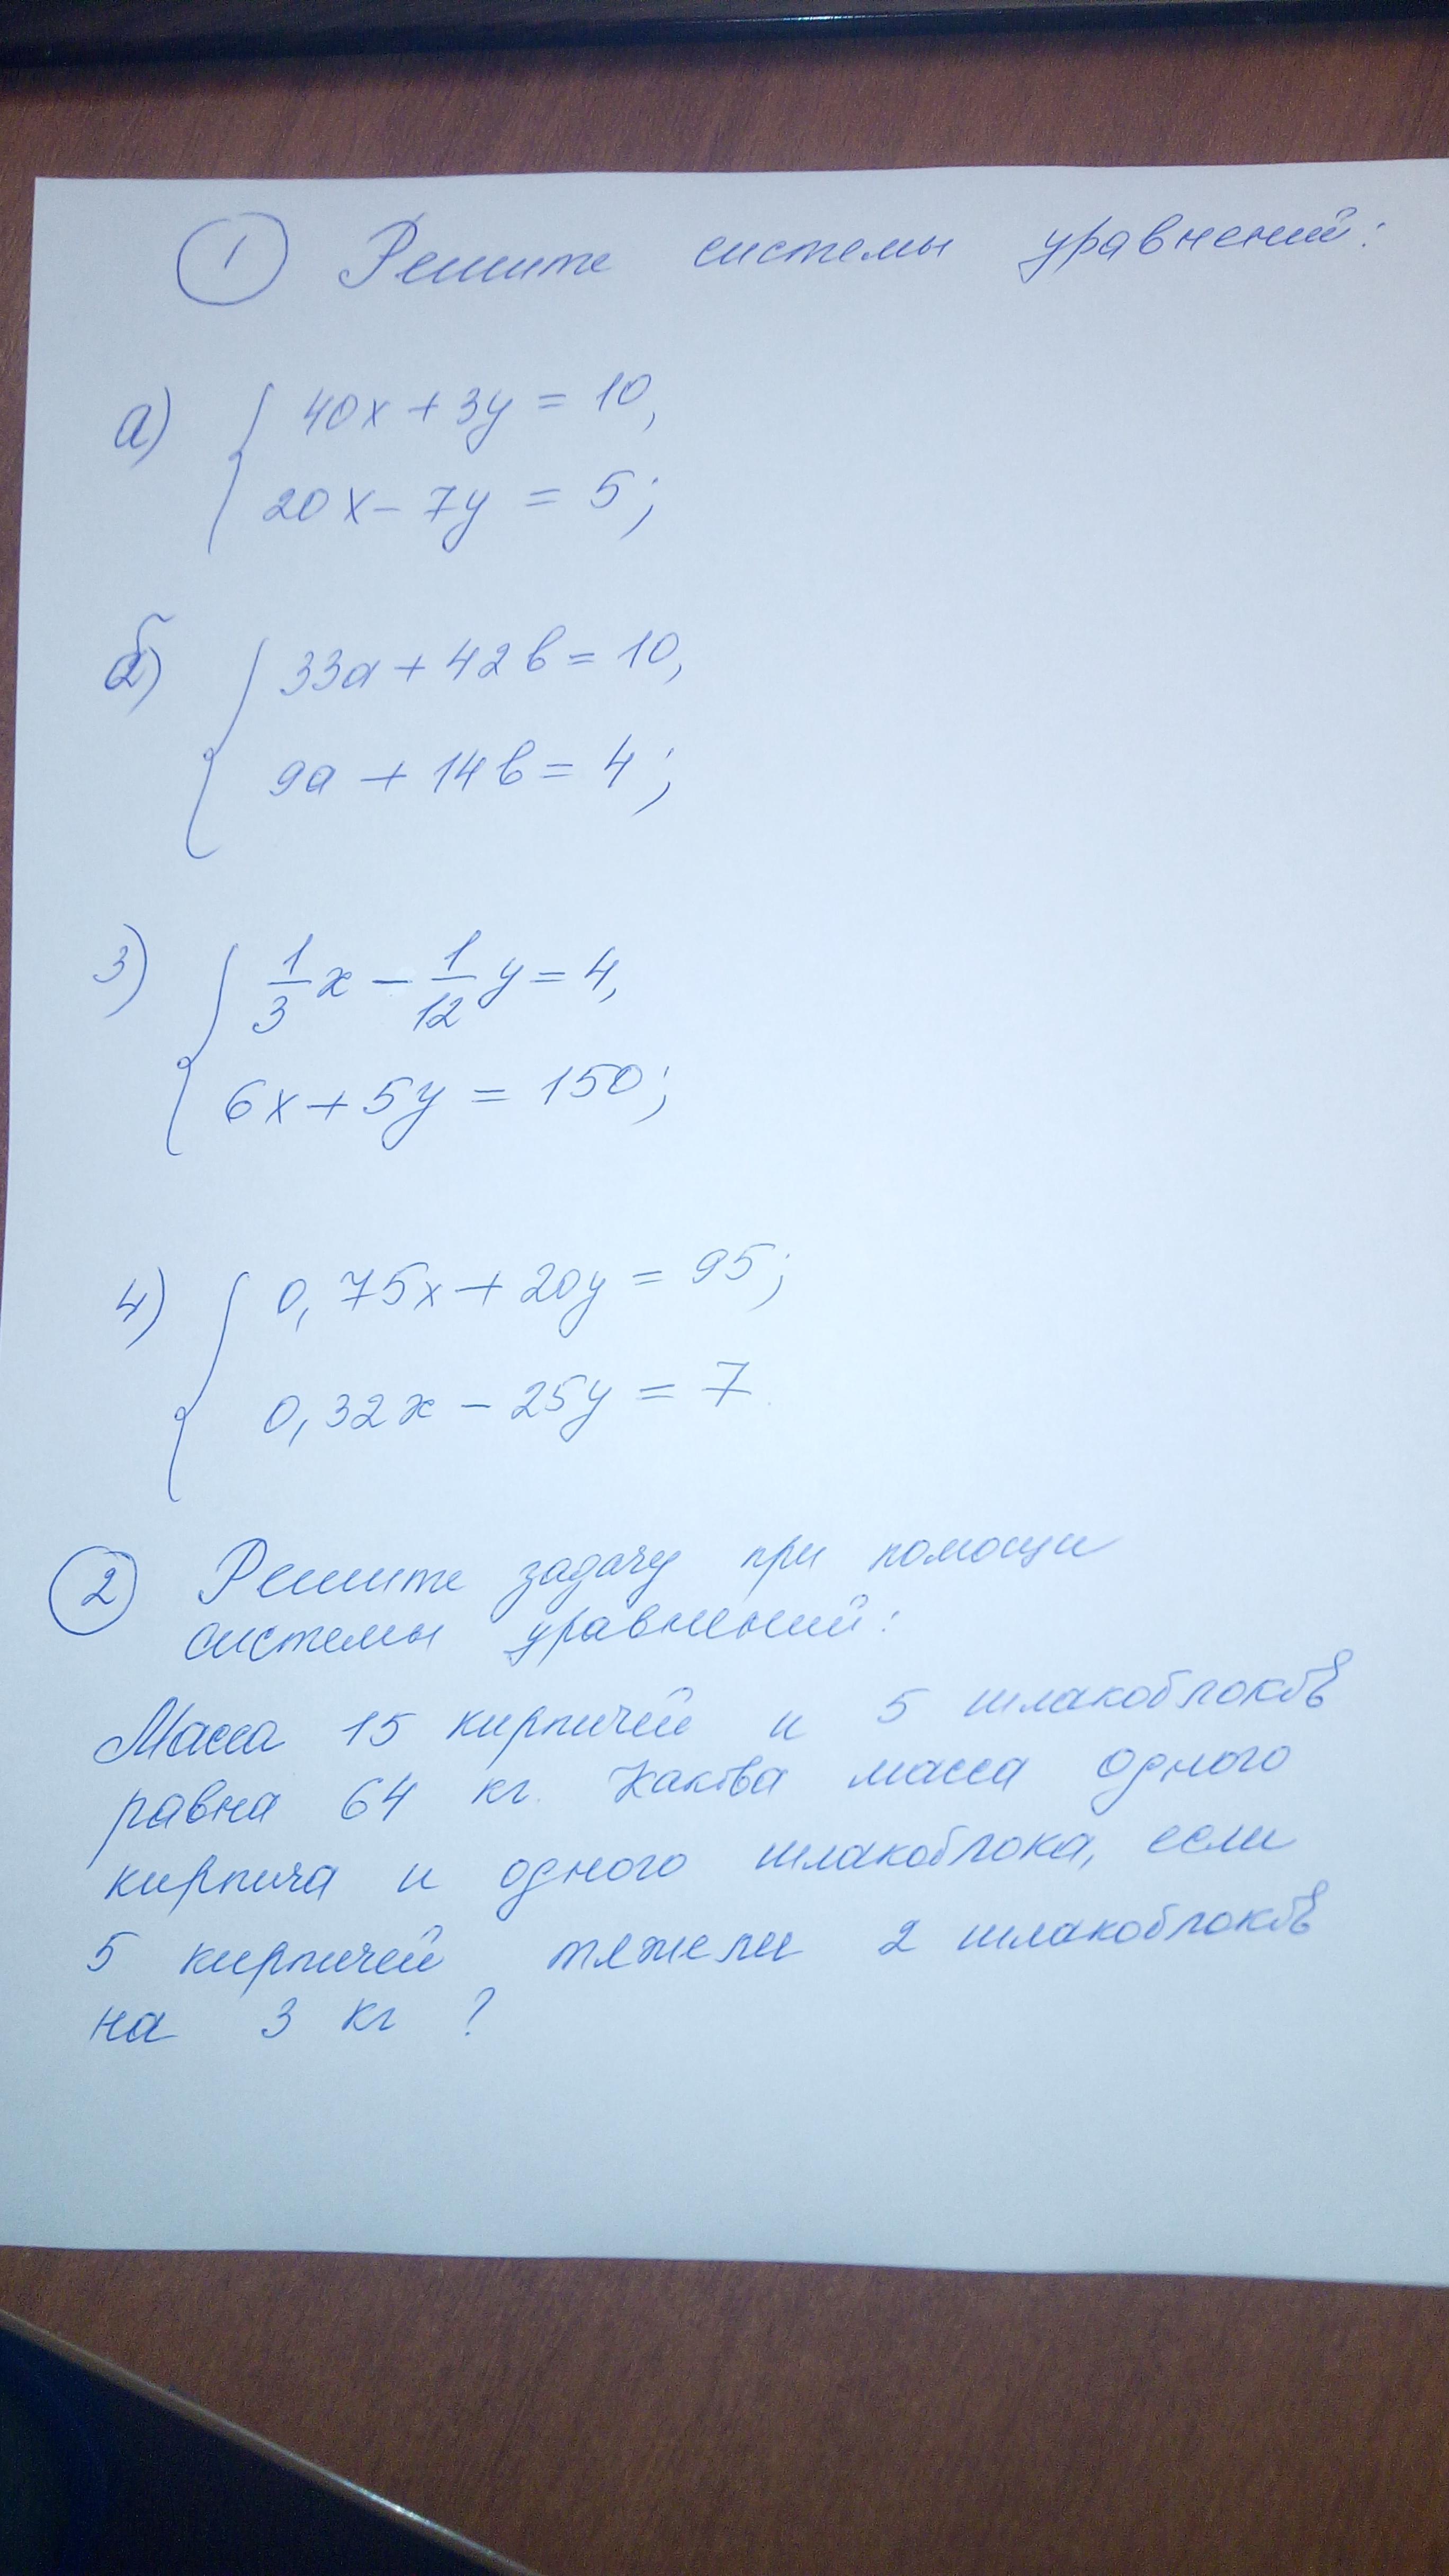 1 Решите системы уравнений:
а) { 40x + 3y = 10,
20x - 7y = 5;
б) { 33a + 42b = 10,
9a + 14b = 4;
3) { 1/3 x - 1/12 y = 4,
6x + 5y = 150;
4) { 0,75x + 20y = 95;
0,32x - 25y = 7
2 Решите задачу при помощи
системы уравнений:
Масса 15 кирпичей и 5 шлакоблоков
равна 64 кг. Какова масса одного
кирпича и одного шлакоблока, если
5 кирпичей тяжели 2 шлакоблоков
на 3 кг ?